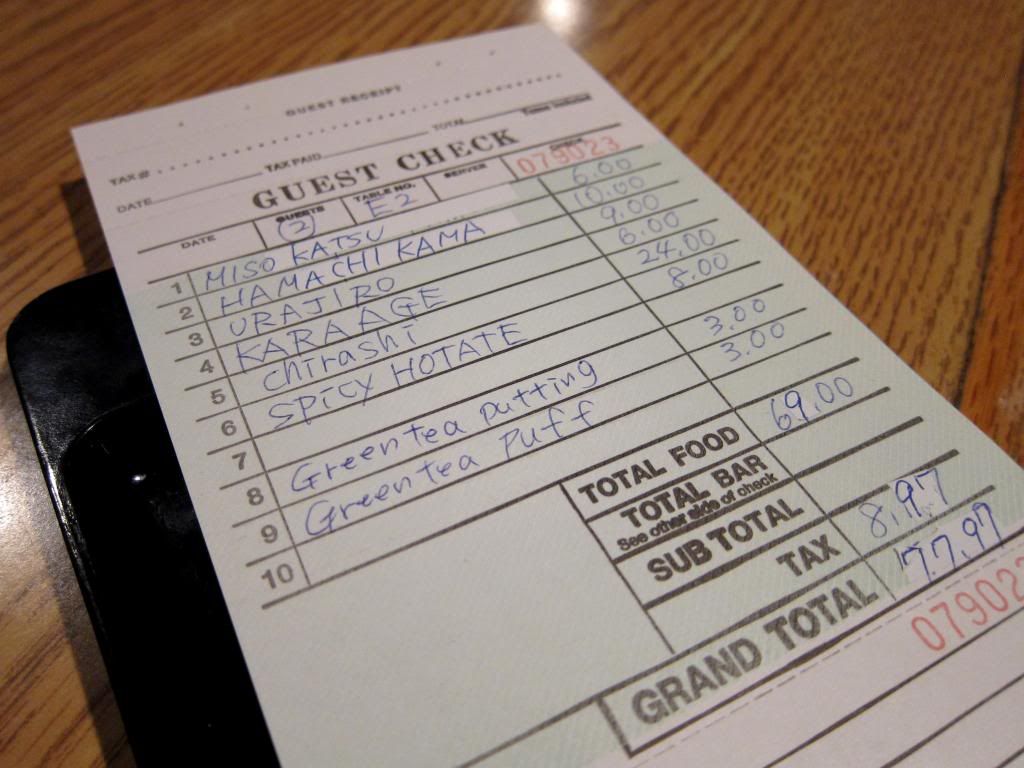 GUEST RECEIPT
TAX # TAX PAID TOTAL Taxes Included
DATE
GUEST CHECK
DATE GUESTS TABLE NO. SERVER CHECK
(2) E2 079023
1 MISO KATSU 6.00
2 HAMACHI KAMA 10.00
3 URAJIRO 9.00
4 KARAAGE 6.00
5 Chirashi 24.00
6 SPICY HOTATE 8.00
7
8 Green tea putting 3.00
9 Green tea puff 3.00
10
TOTAL FOOD 69.00
TOTAL BAR
See other side of check
SUB TOTAL
TAX 8.97
GRAND TOTAL 77.97
07902